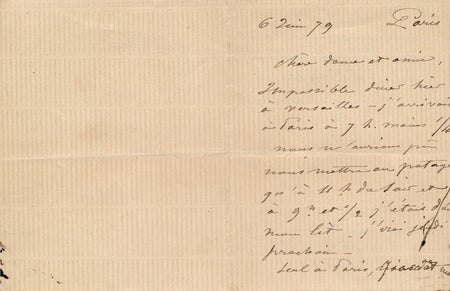 6 Juin 79 Paris
Chère dame et amie,
Impossible diner hier
à Versailles – j'arrivais
à Paris à 7 h. moins 1/4
nous n'aurions pu
nous mettre au potage
qu'à 11 h du soir et
à 9h et 1/2 j'étais da
mon lit – j'irai jeudi
prochain –
Seul à Paris,